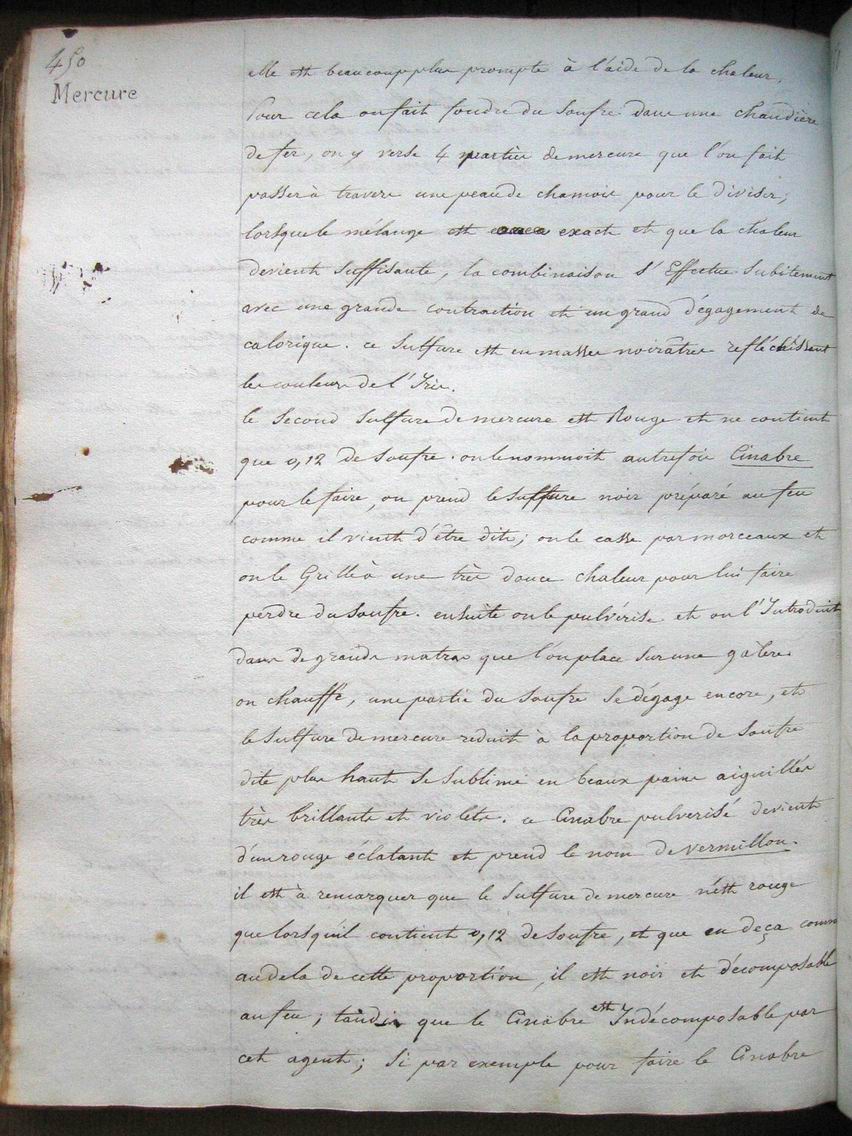 450
Mercure
elle est beaucoup plus prompte à l'aide de la chaleur,
Pour cela on fait fondre du soufre dans une chaudière
de fer, on y verse 4 parties de mercure que l'on fait
passer à travers une peau de chamois pour le diviser;
lorsque le mélange est exact et que la chaleur
devient suffisante, la combinaison s'Effectue subitement
avec une grande contraction et un grand dégagement de
calorique. ce sulfure est en masses noirâtres refléchissant
les couleurs de l'Iris.
le second sulfure de mercure est Rouge et ne contient
que 0,12 de soufre. on le nommoit autrefois Cinabre
pour le faire, on prend le sulfure noir préparé au feu
comme il vient d'être dit; on le casse par morceaux et
on le Grille à une très douce chaleur pour lui faire
perdre du soufre. ensuite on le pulvérise et on l'Introduit
dans de grands matras que l'on place sur une galère
on chauffe, une partie du soufre se dégage encore, et
le sulfure de mercure reduit à la proportion de soufre
dite plus haut se sublime en beaux pains aiguillés
très brillants et violets. ce Cinabre pulverisé devient
d'un rouge éclatant et prend le nom de vermillon.
il est à remarquer que le sulfure de mercure n'est rouge
que lorsqu'il contient 0,12 de soufre, et que en deça comm
au dela de cette proportion, il est noir et décomposable
au feu; tandis que le Cinabre est Indécomposable par
cet agent; Si par exemple pour faire le Cinabre